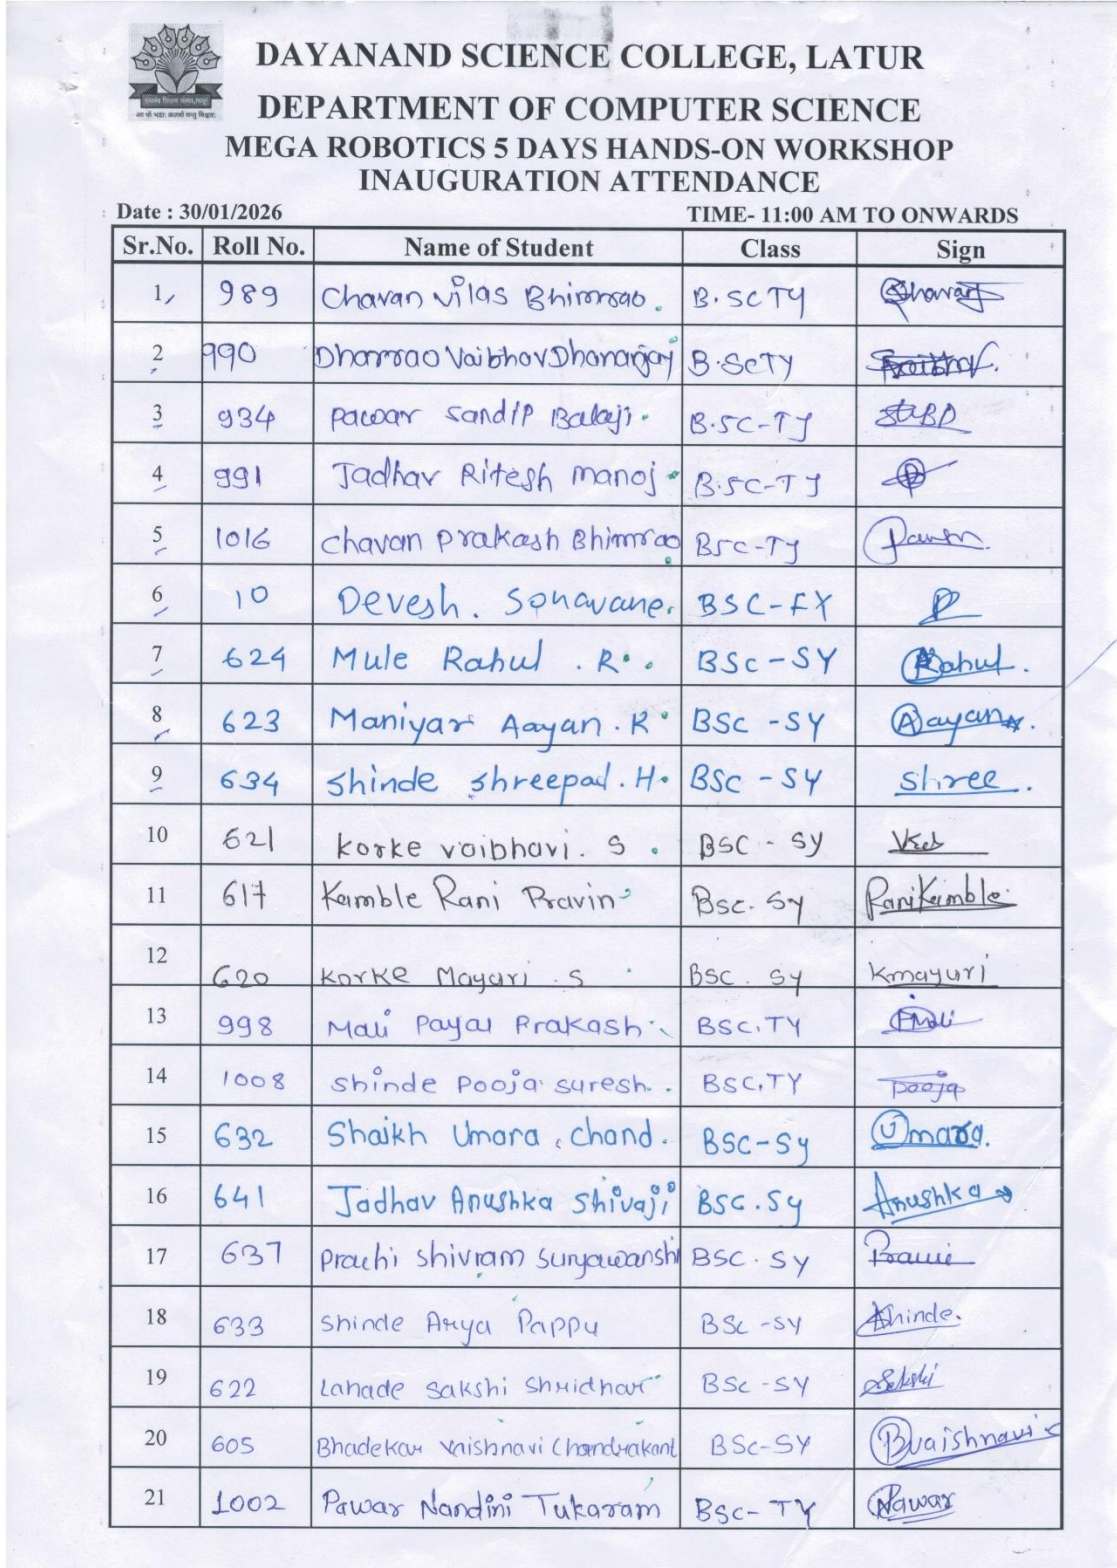 DAYANAND SCIENCE COLLEGE, LATUR
DEPARTMENT OF COMPUTER SCIENCE
MEGA ROBOTICS 5 DAYS HANDS-ON WORKSHOP
INAUGURATION ATTENDANCE
Date : 30/01/2026 TIME- 11:00 AM TO ONWARDS
Sr.No. Roll No. Name of Student Class Sign
1, 989 Chavan Vilas Bhimrao. B.SCTY Chavan
2 990 Dhamrao Vaibhav Dhananjay B.ScTY
3 934 Pawar Sandip Balaji. B.SC-TY
4 991 Jadhav Ritesh Manoj B.SC-TY
5 1016 Chavan Prakash Bhimrao BSC-TY
6 10 Devesh. Sonavane. BSC-FY
7 624 Mule Rahul . R. BSc-SY Rahul.
8 623 Maniyar Aayan . R BSC-SY Aayan.
9 634 Shinde Shreepad . H. BSC-SY Shree.
10 621 Korke Vaibhavi. S . BSC-SY
11 617 Kamble Rani Pravin BSC. SY Rani Kamble
12 620 Korke Mayuri . S BSC. Sy Kmayuri
13 998 Mali Payal Prakash BSC.TY
14 1008 Shinde Pooja Suresh. BSC.TY Pooja
15 632 Shaikh Umara , Chand. BSC-Sy Umara.
16 641 Jadhav Anushka Shivaji BSC.Sy Anushka
17 637 Prachi Shivram Suryawanshi BSC. SY
18 633 Shinde Arya Pappu BSc-SY Shinde.
19 622 Lahade Sakshi Shridhar BSc-SY Sakshi
20 605 Bhadekar Vaishnavi Chandrakant BSc-SY Bvaishnavi C
21 1002 Pawar Nandini Tukaram BSC-TY Pawar